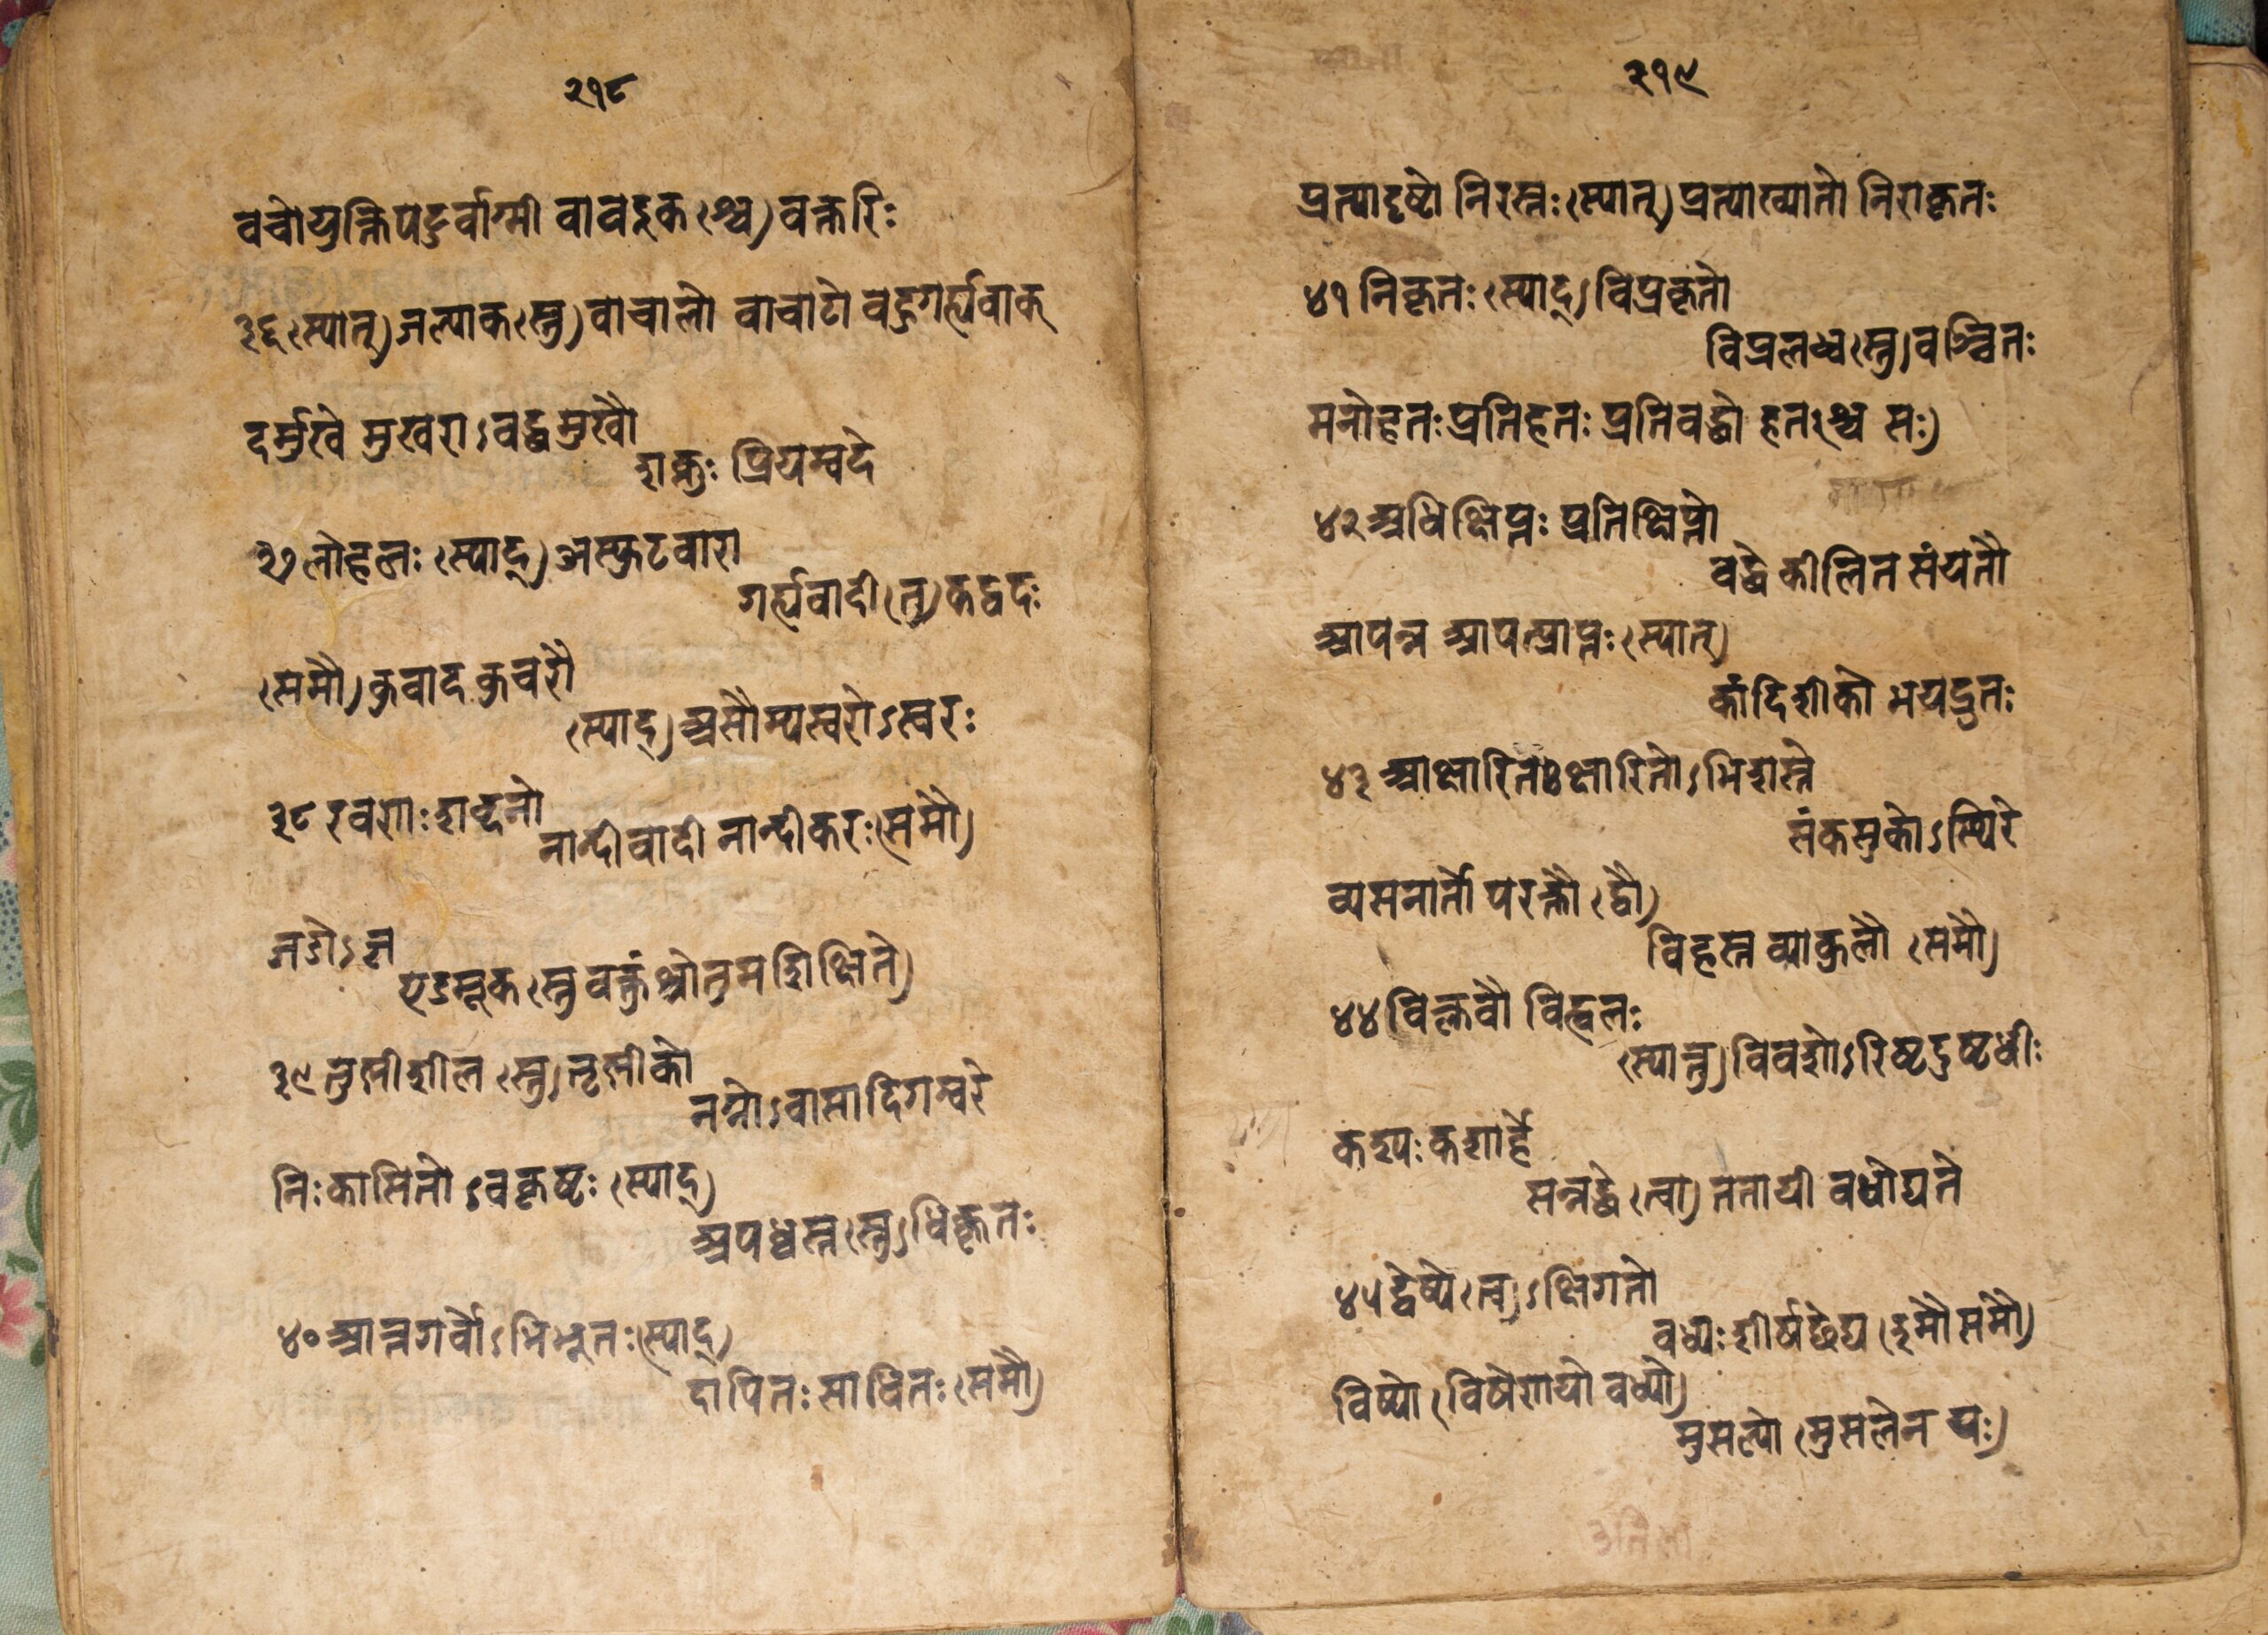 २१८
वचोयुक्तिपटुर्वाग्मी वावदूक(श्च) वक्तरिः
३६ (स्यात्) जल्पाक(स्तु) वाचालो वाचाटो वहुगर्ह्यवाक्
दर्मुखे मुखराऽवद्धमुखौ
शक्लुः प्रियम्वदे
३७ लोहलः (स्याद्) अस्फुटवारा
गर्ह्यवादी (तु) कद्वदः
(समौ) कुवाद कुचरौ
(स्याद्) असौम्यस्वरोऽस्वरः
३८ रवणः शब्दनो
नान्दीवादी नान्दीकरः (समौ)
जडोऽज्ञ
एडमूक (स्तु वक्तुं श्रोतुमशिक्षिते)
३९ तुष्णीशील (स्तु) तृष्णीको
नग्नोऽवासा दिगम्वरे
निःकासितोऽवकृष्टः (स्याद्)
अपध्वस्त(स्तु) धिक्कृतः
४० आत्तगर्वोऽभिभूतः (स्याद्)
दापितः साधितः (समौ)
२१९
प्रत्यादृष्टो निरस्तः (स्यात्) प्रत्याख्यातो निराकृतः
४१ निकृतः (स्याद्) विप्रकृतो
विप्रलब्ध(स्तु) वञ्चितः
मनोहतः प्रतिहतः प्रतिवद्धो हत(श्च सः)
४२ अधिक्षिप्तः प्रतिक्षिप्तो
वद्धे कीलित संयतौ
आपन्न आपत्प्राप्तः (स्यात्)
कांदिशीको भयद्रुतः
४३ आक्षारितः क्षारितोऽभिशस्ते
संकसुकोऽस्थिरे
व्यसनार्तोपरक्तौ (द्वौ)
विहस्त व्याकुलौ (समौ)
४४ विक्लवौ विह्वलः
(स्यात्तु) विवशोऽरिष्टदुष्टधीः
कश्यः कशार्हे
सन्नद्धे (त्वा) ततायी वधोद्यते
४५ द्वेष्ये (त्व)ऽक्षिगतो
वध्यः शीर्षछेद्य (इमौ समौ)
विष्यो (विषेणयो वध्यो)
मुसल्यो (मुसलेन यः)